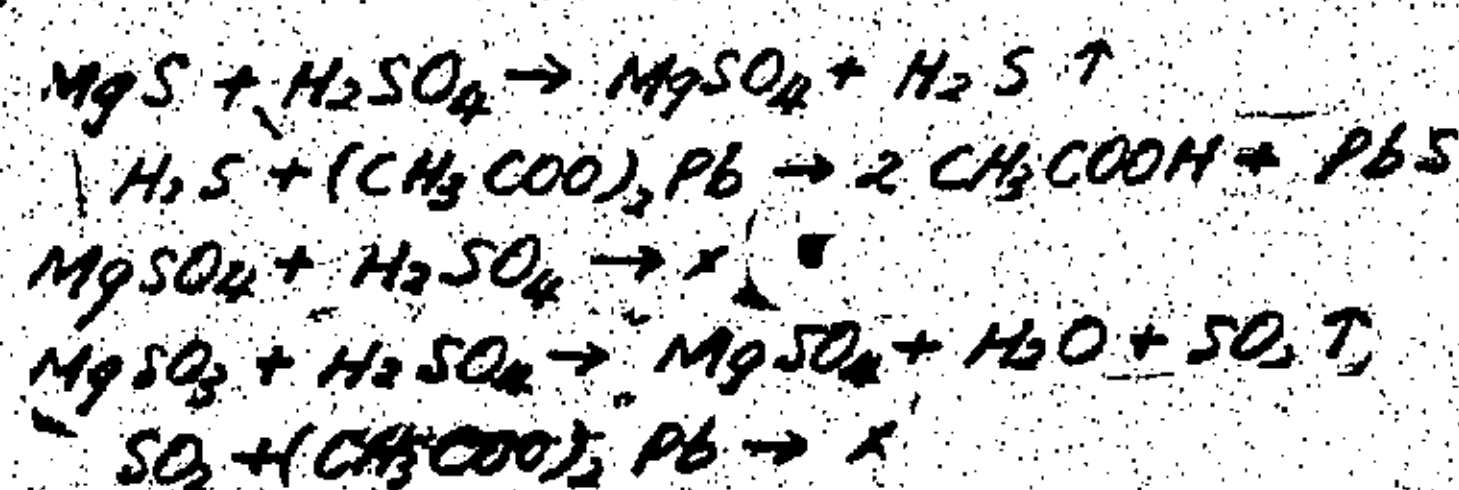 MgS + H₂SO₄ → MgSO₄ + H₂S ↑
H₂S + (CH₃COO)₂Pb → 2 CH₃COOH + PbS
MgSO₄ + H₂SO₄ → x
MgSO₃ + H₂SO₄ → MgSO₄ + H₂O + SO₂ ↑
SO₂ + (CH₃COO)₂ Pb → x